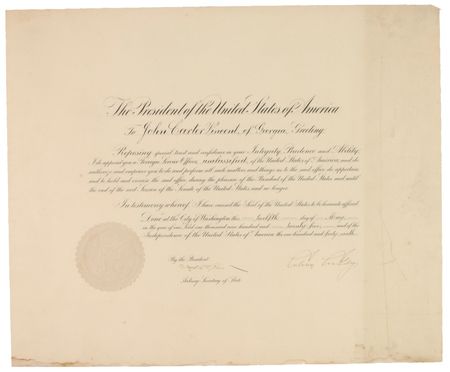 The President of the United States of America
To John Carter Vincent, of Georgia, Greeting:
Reposing special trust and confidence in your Integrity, Prudence and Ability,
I do appoint you a Foreign Service Officer, unclassified, of the United States of America, and do
authorize and empower you to do and perform all such matters and things as to the said office do appertain
and to hold and exercise the said office during the pleasure of the President of the United States and until
the end of the next Session of the Senate of the United States and no longer.
In testimony whereof, I have caused the Seal of the United States to be hereunto affixed.
Done at the City of Washington this day of May,
in the year of our Lord one thousand nine hundred and twenty five, and of the
Independence of the United States of America the one hundred and forty ninth.
By the President:
Secretary of State.
Calvin Coolidge